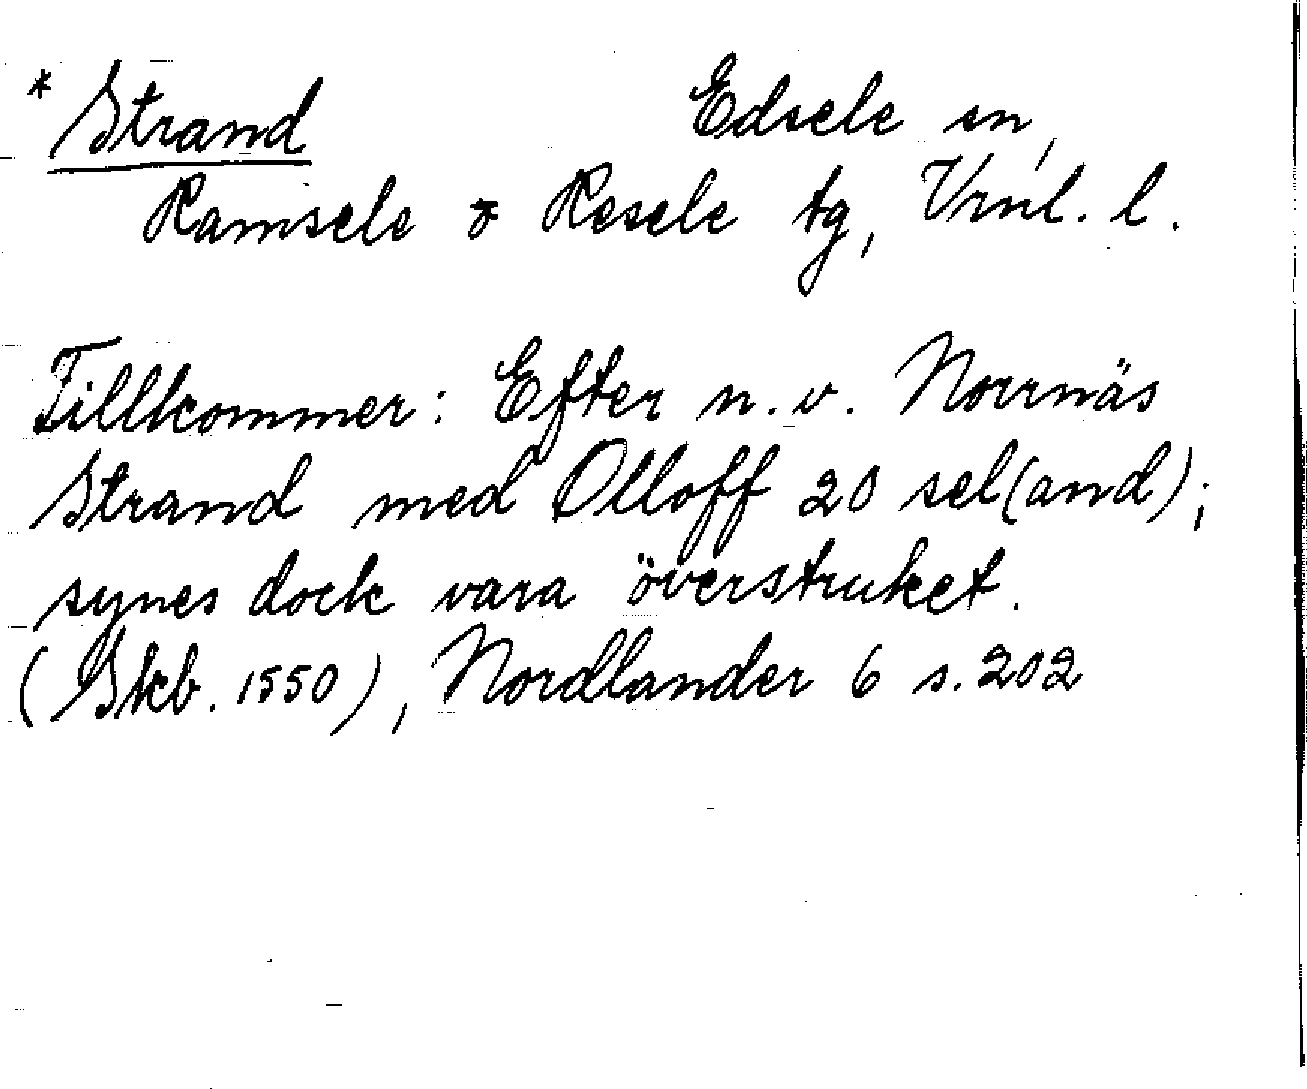 * Strand Edsele sn,
Ramsele o Resele tg, Vrnl. l.
Tillkommer: Efter n.v. Norrnäs
Strand med Olloff 20 sel(and);
synes dock vara överstruket.
(Skb. 1550), Nordlander 6 s. 202